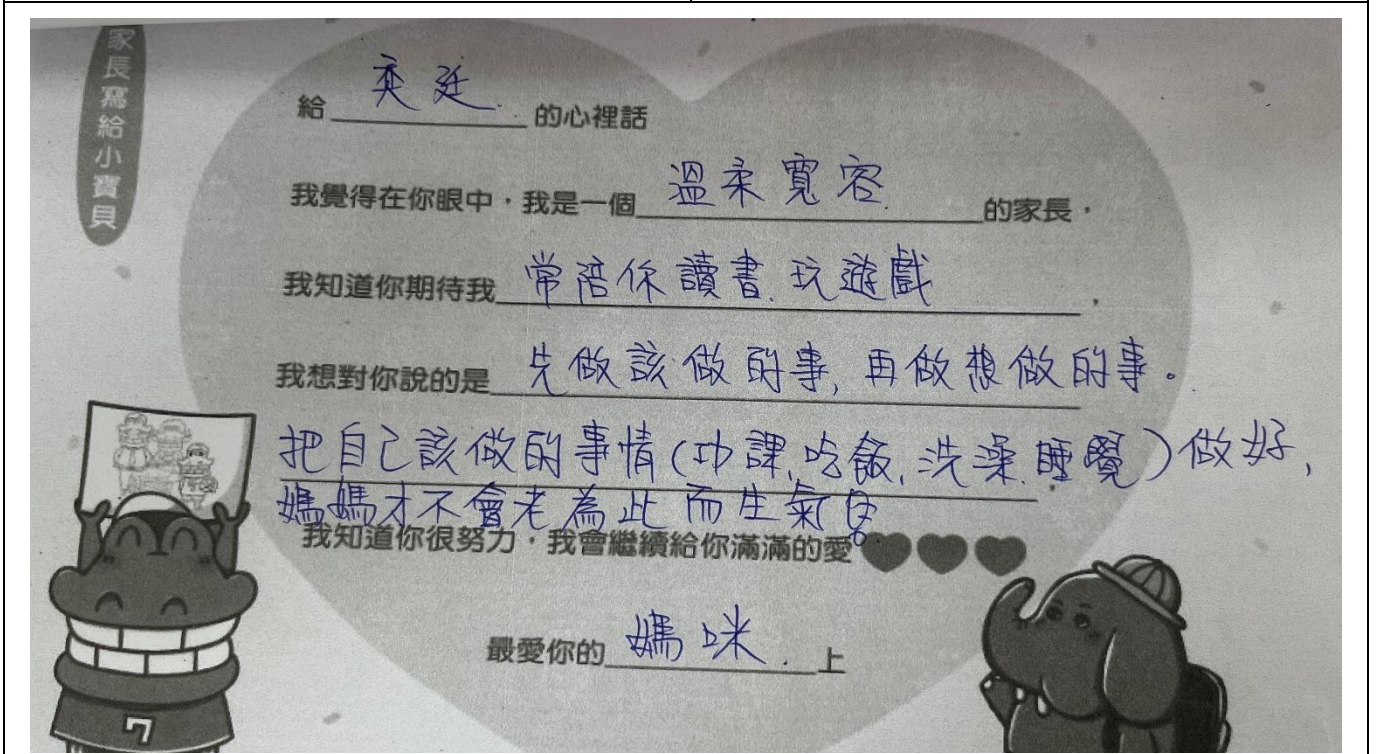 家長寫給小寶貝
給 奕廷 的心裡話
我覺得在你眼中，我是一個 溫柔寬容 的家長，
我知道你期待我 常陪你讀書、玩遊戲 ，
我想對你說的是 先做該做的事, 再做想做的事。
把自己該做的事情(功課、吃飯、洗澡、睡覺)做好,
媽媽才不會老為此而生氣
我知道你很努力，我會繼續給你滿滿的愛
最愛你的 媽咪 上